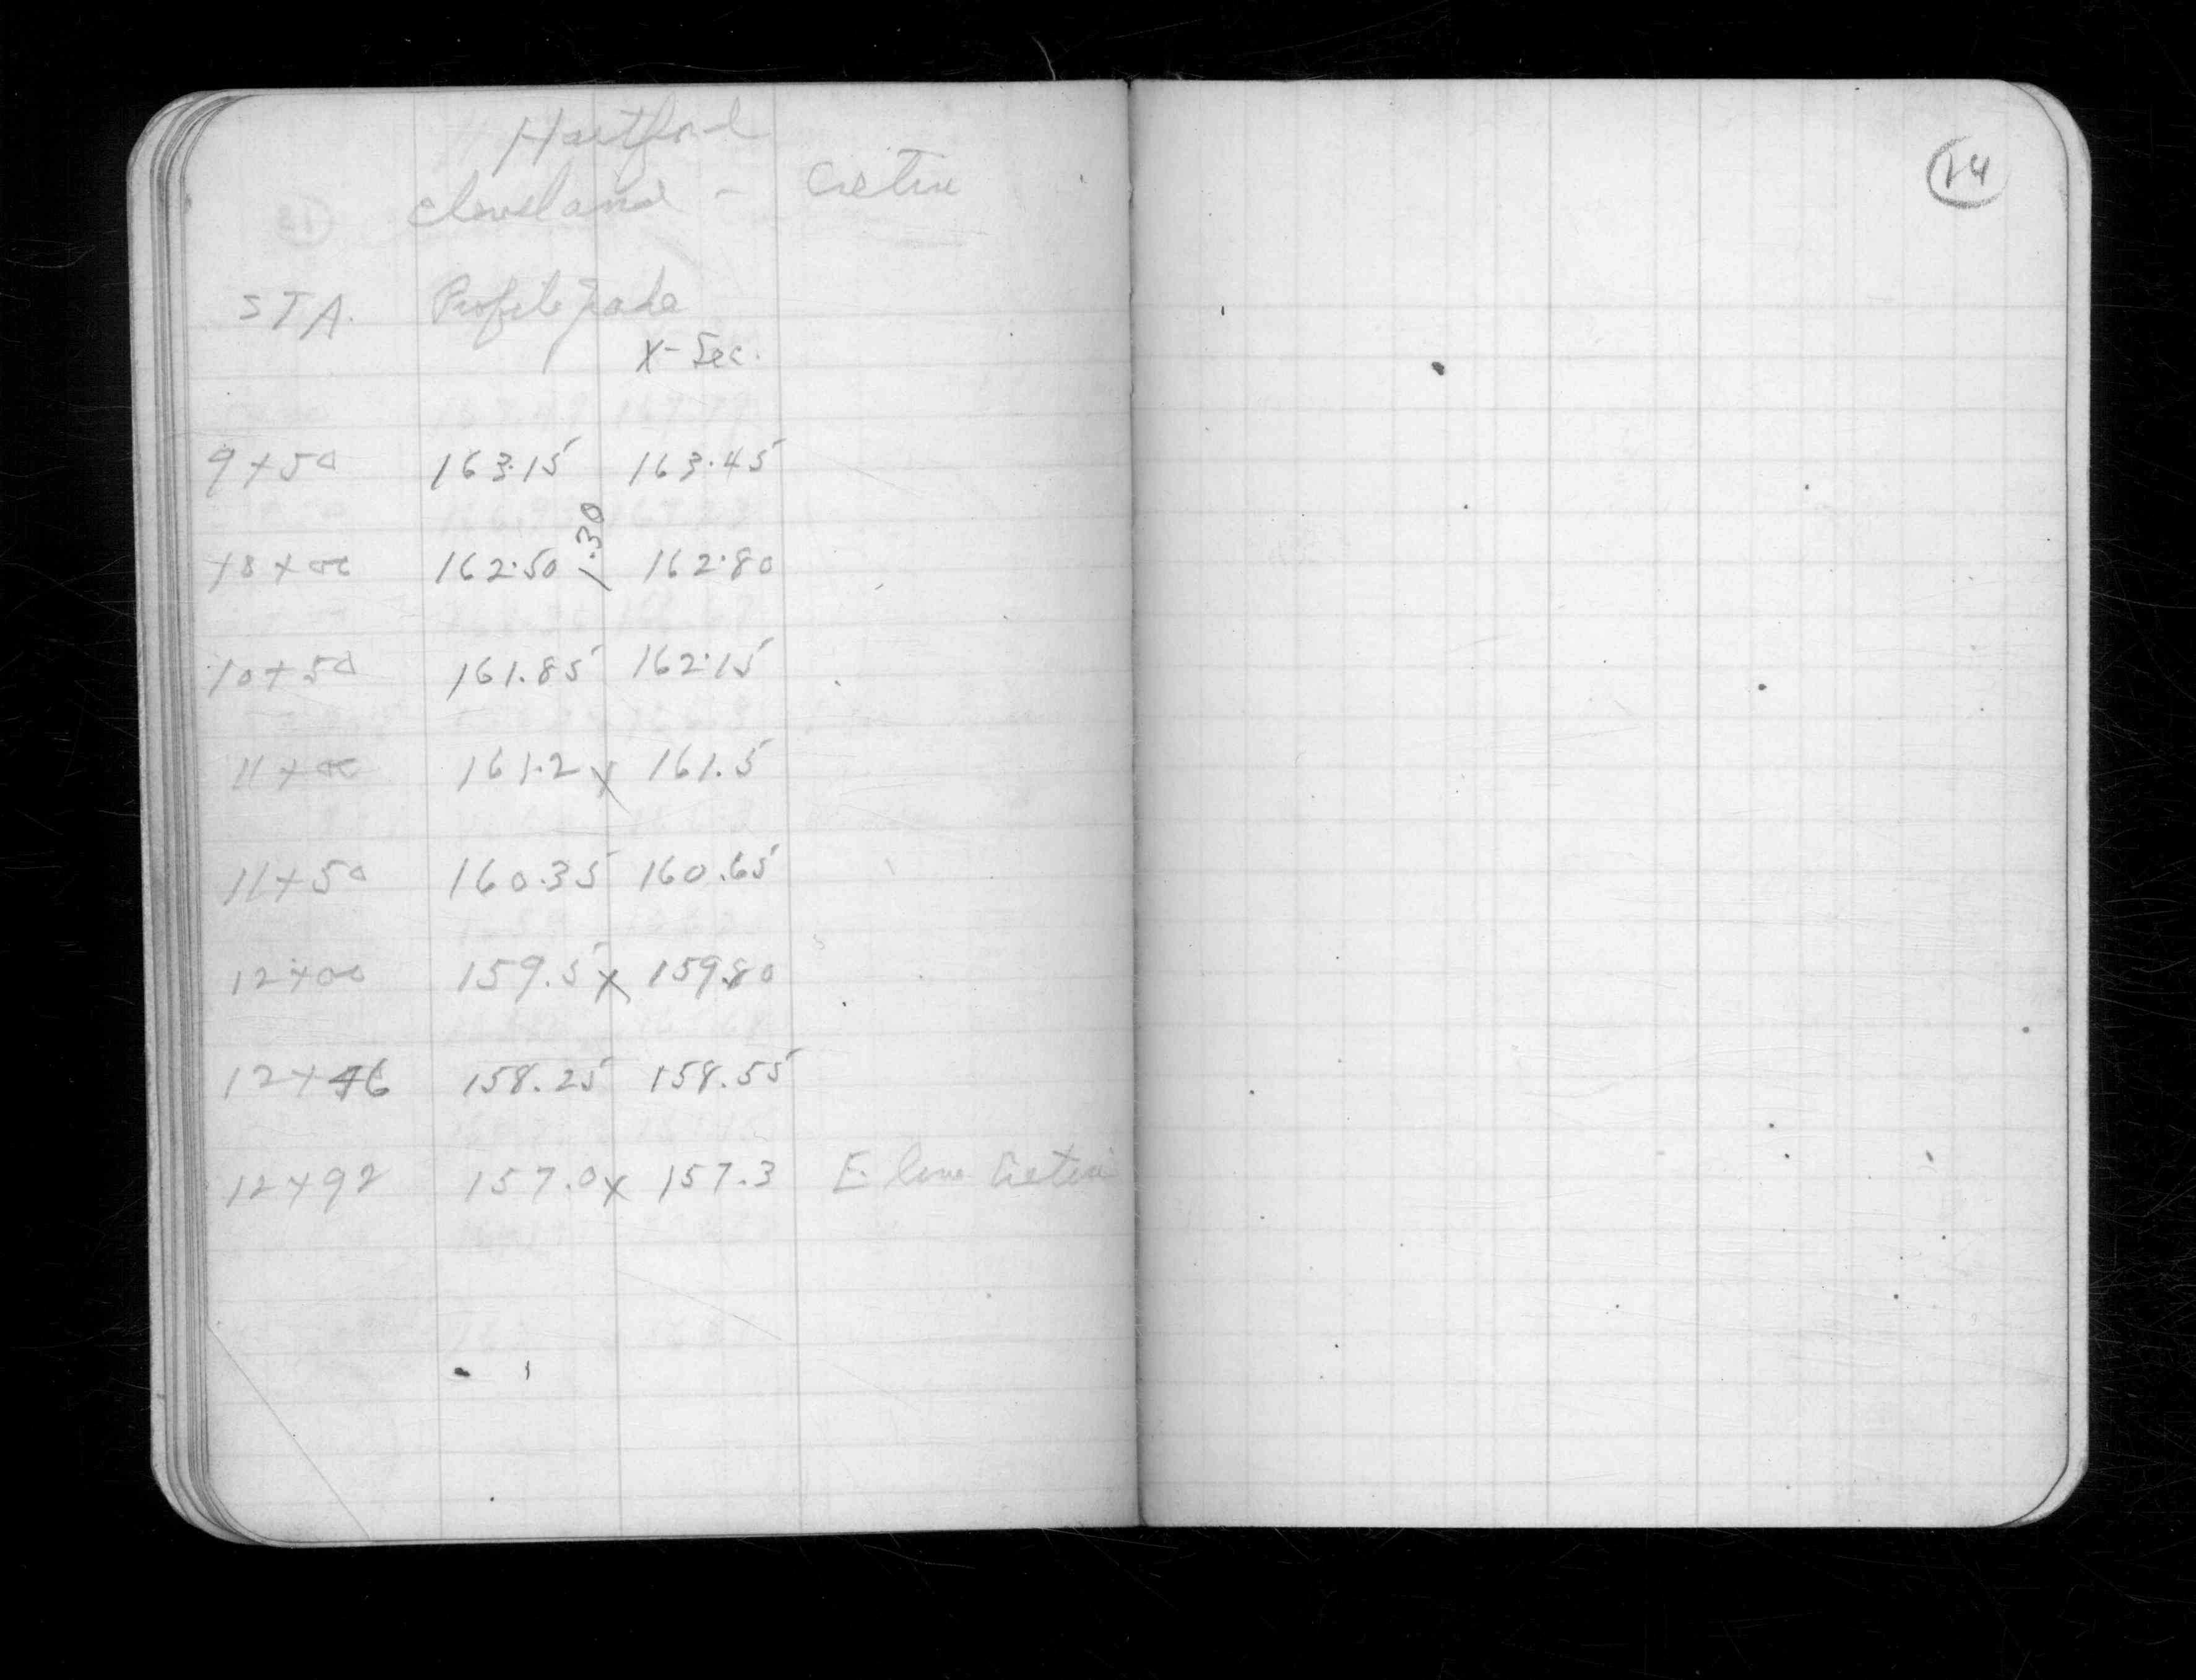 Hartford
Cleveland - Cretin
14
STA. Profile grade
X-Sec.
9+50 163.15 163.45
1.30
10+00 162.50 162.80
10+50 161.85 162.15
11+00 161.2 x 161.5
11+50 160.35 160.65
12+00 159.5 x 159.80
12+46 158.25 158.55
12+92 157.0 x 157.3 E. line Cretin